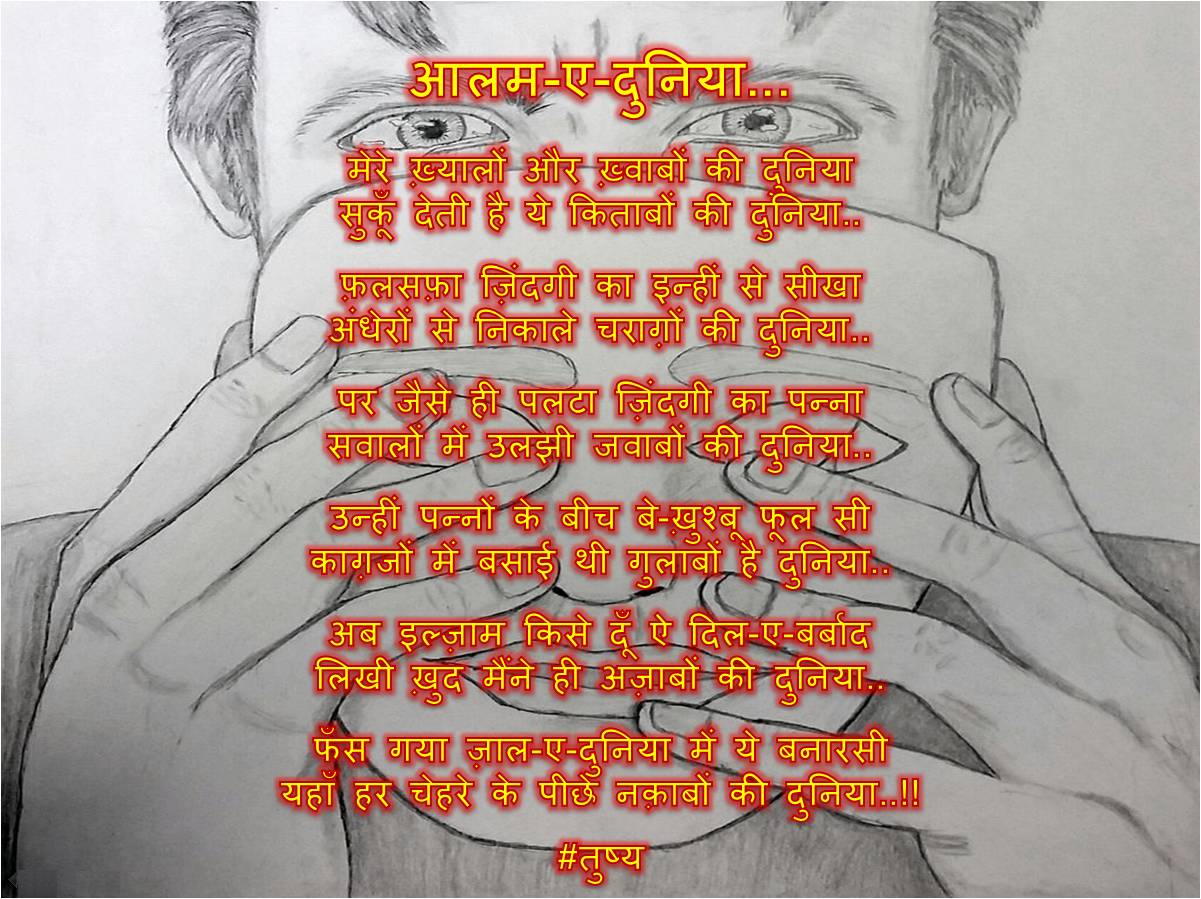 आलम-ए-दुनिया...
मेरे ख़्यालों और ख़्वाबों की दुनिया
सुकूँ देती है ये किताबों की दुनिया..
फ़लसफ़ा ज़िंदगी का इन्हीं से सीखा
अंधेरों से निकाले चराग़ों की दुनिया..
पर जैसे ही पलटा ज़िंदगी का पन्ना
सवालों में उलझी जवाबों की दुनिया..
उन्हीं पन्नों के बीच बे-ख़ुश्बू फूल सी
काग़जों में बसाई थी गुलाबों है दुनिया..
अब इल्ज़ाम किसे दूँ ऐ दिल-ए-बर्बाद
लिखी ख़ुद मैंने ही अज़ाबों की दुनिया..
फँस गया ज़ाल-ए-दुनिया में ये बनारसी
यहाँ हर चेहरे के पीछे नक़ाबों की दुनिया..!!
#तुष्य